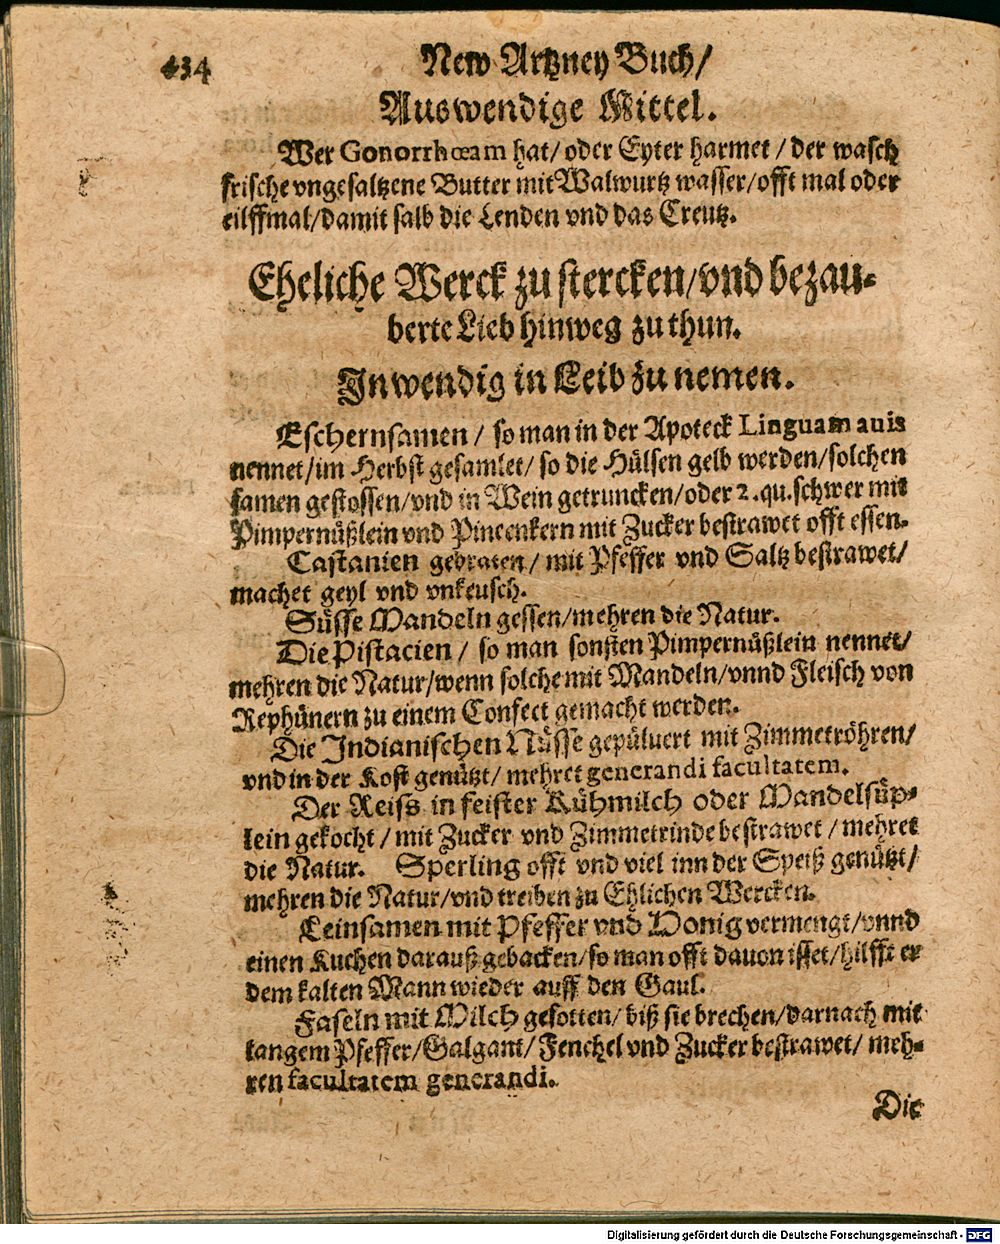 434
New Artzney Buch/
Auswendige Mittel.
Wer Gonorrhœam hat/ oder Eyter harmet / der wasch
frische vngesaltzene Butter mit Walwurtz wasser/ offt mal oder
eilffmal/ damit salb die Lenden vnd das Creutz.
Eheliche Werck zu stercken/ vnd bezau-
berte Lieb hinweg zu thun.
Inwendig in Leib zu nemen.
Eschernsamen / so man in der Apoteck Linguam auis
nennet/ im Herbst gesamlet/ so die Hülsen gelb werden/ solchen
samen gestossen/ vnd in Wein getruncken/ oder 2. qu. schwer mit
Pimpernüßlein vnd Pineenkern mit Zucker bestrawet offt essen.
Castanien gebraten/ mit Pfeffer vnd Saltz bestrawet/
machet geyl vnd vnkeusch.
Süsse Mandeln gessen/ mehren die Natur.
Die Pistacien / so man sonsten Pimpernüßlein nennet/
mehren die Natur/ wenn solche mit Mandeln/ vnnd Fleisch von
Rephünern zu einem Confect gemacht werden.
Die Indianischen Nüsse gepüluert mit Zimmetröhren/
vnd in der Kost genützt/ mehret generandi facultatem.
Der Reiss in feister Kühmilch oder Mandelsüp-
lein gekocht / mit Zucker vnd Zimmetrinde bestrawet / mehret
die Natur. Sperling offt vnd viel inn der Speiß genützt/
mehren die Natur/ vnd treiben zu Ehlichen Wercken.
Leinsamen mit Pfeffer vnd Honig vermengt/ vnnd
einen Kuchen darauß gebacken/ so man offt dauon isset/ hilfft er
dem kalten Mann wieder auff den Gaul.
Faseln mit Milch gesotten/ biß sie brechen/ darnach mit
langem Pfeffer/ Galgant/ Fenchel vnd Zucker bestrawet/ meh-
ren facultatem generandi.
Die
Digitalisierung gefördert durch die Deutsche Forschungsgemeinschaft - DFG